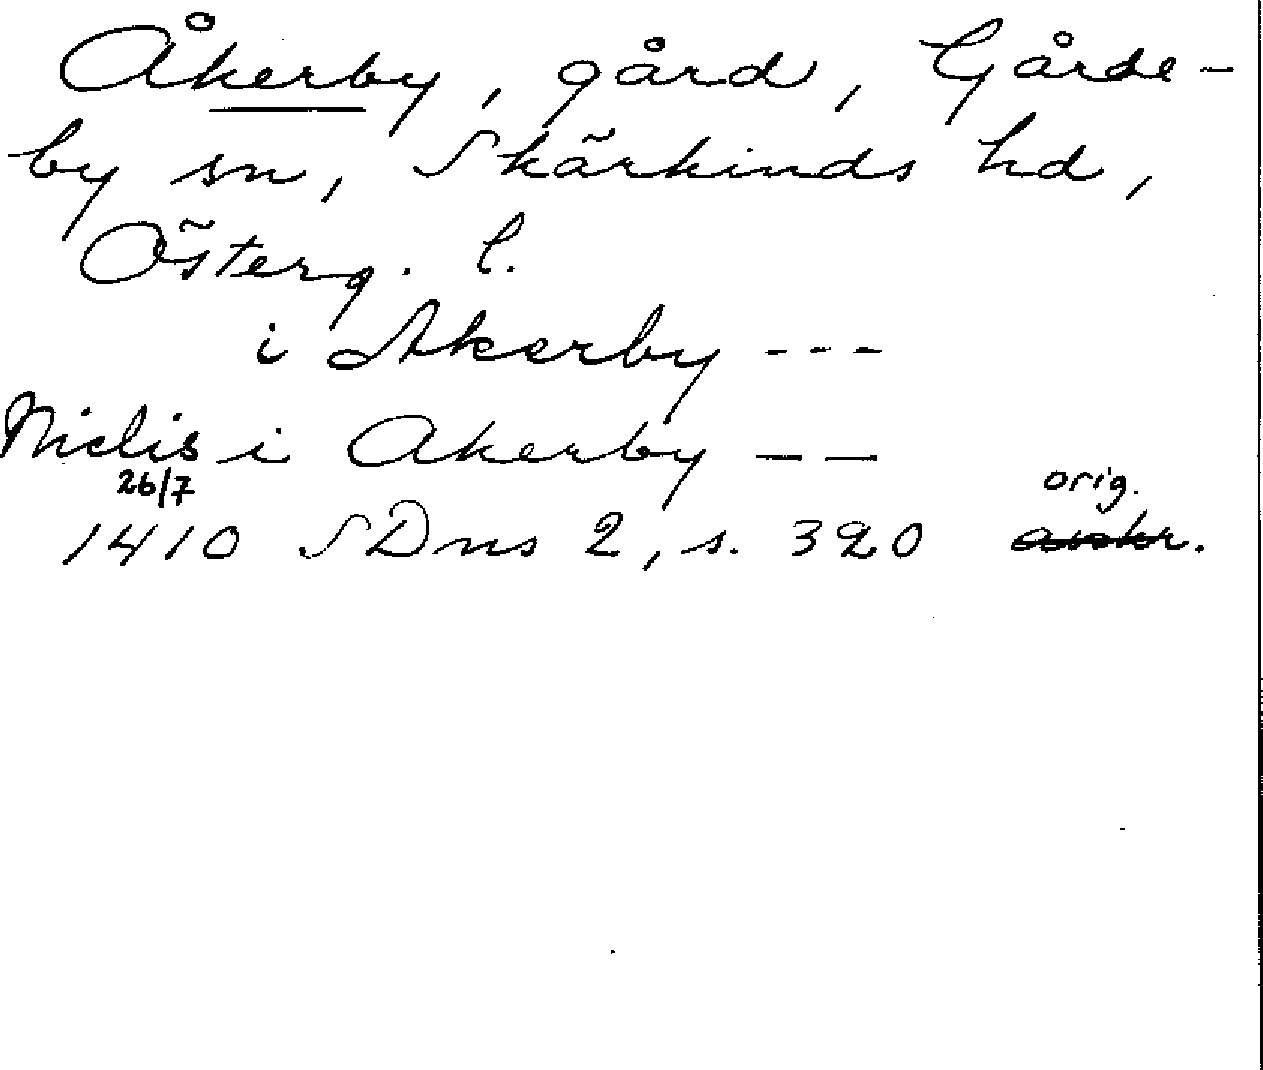 Åkerby, gård, Gårde-
by sn, Skärkinds hd,
Österg. l.
i Akerby ---
Niclis i Akerby – –
26/7 orig.
1410 SDns 2, s. 320